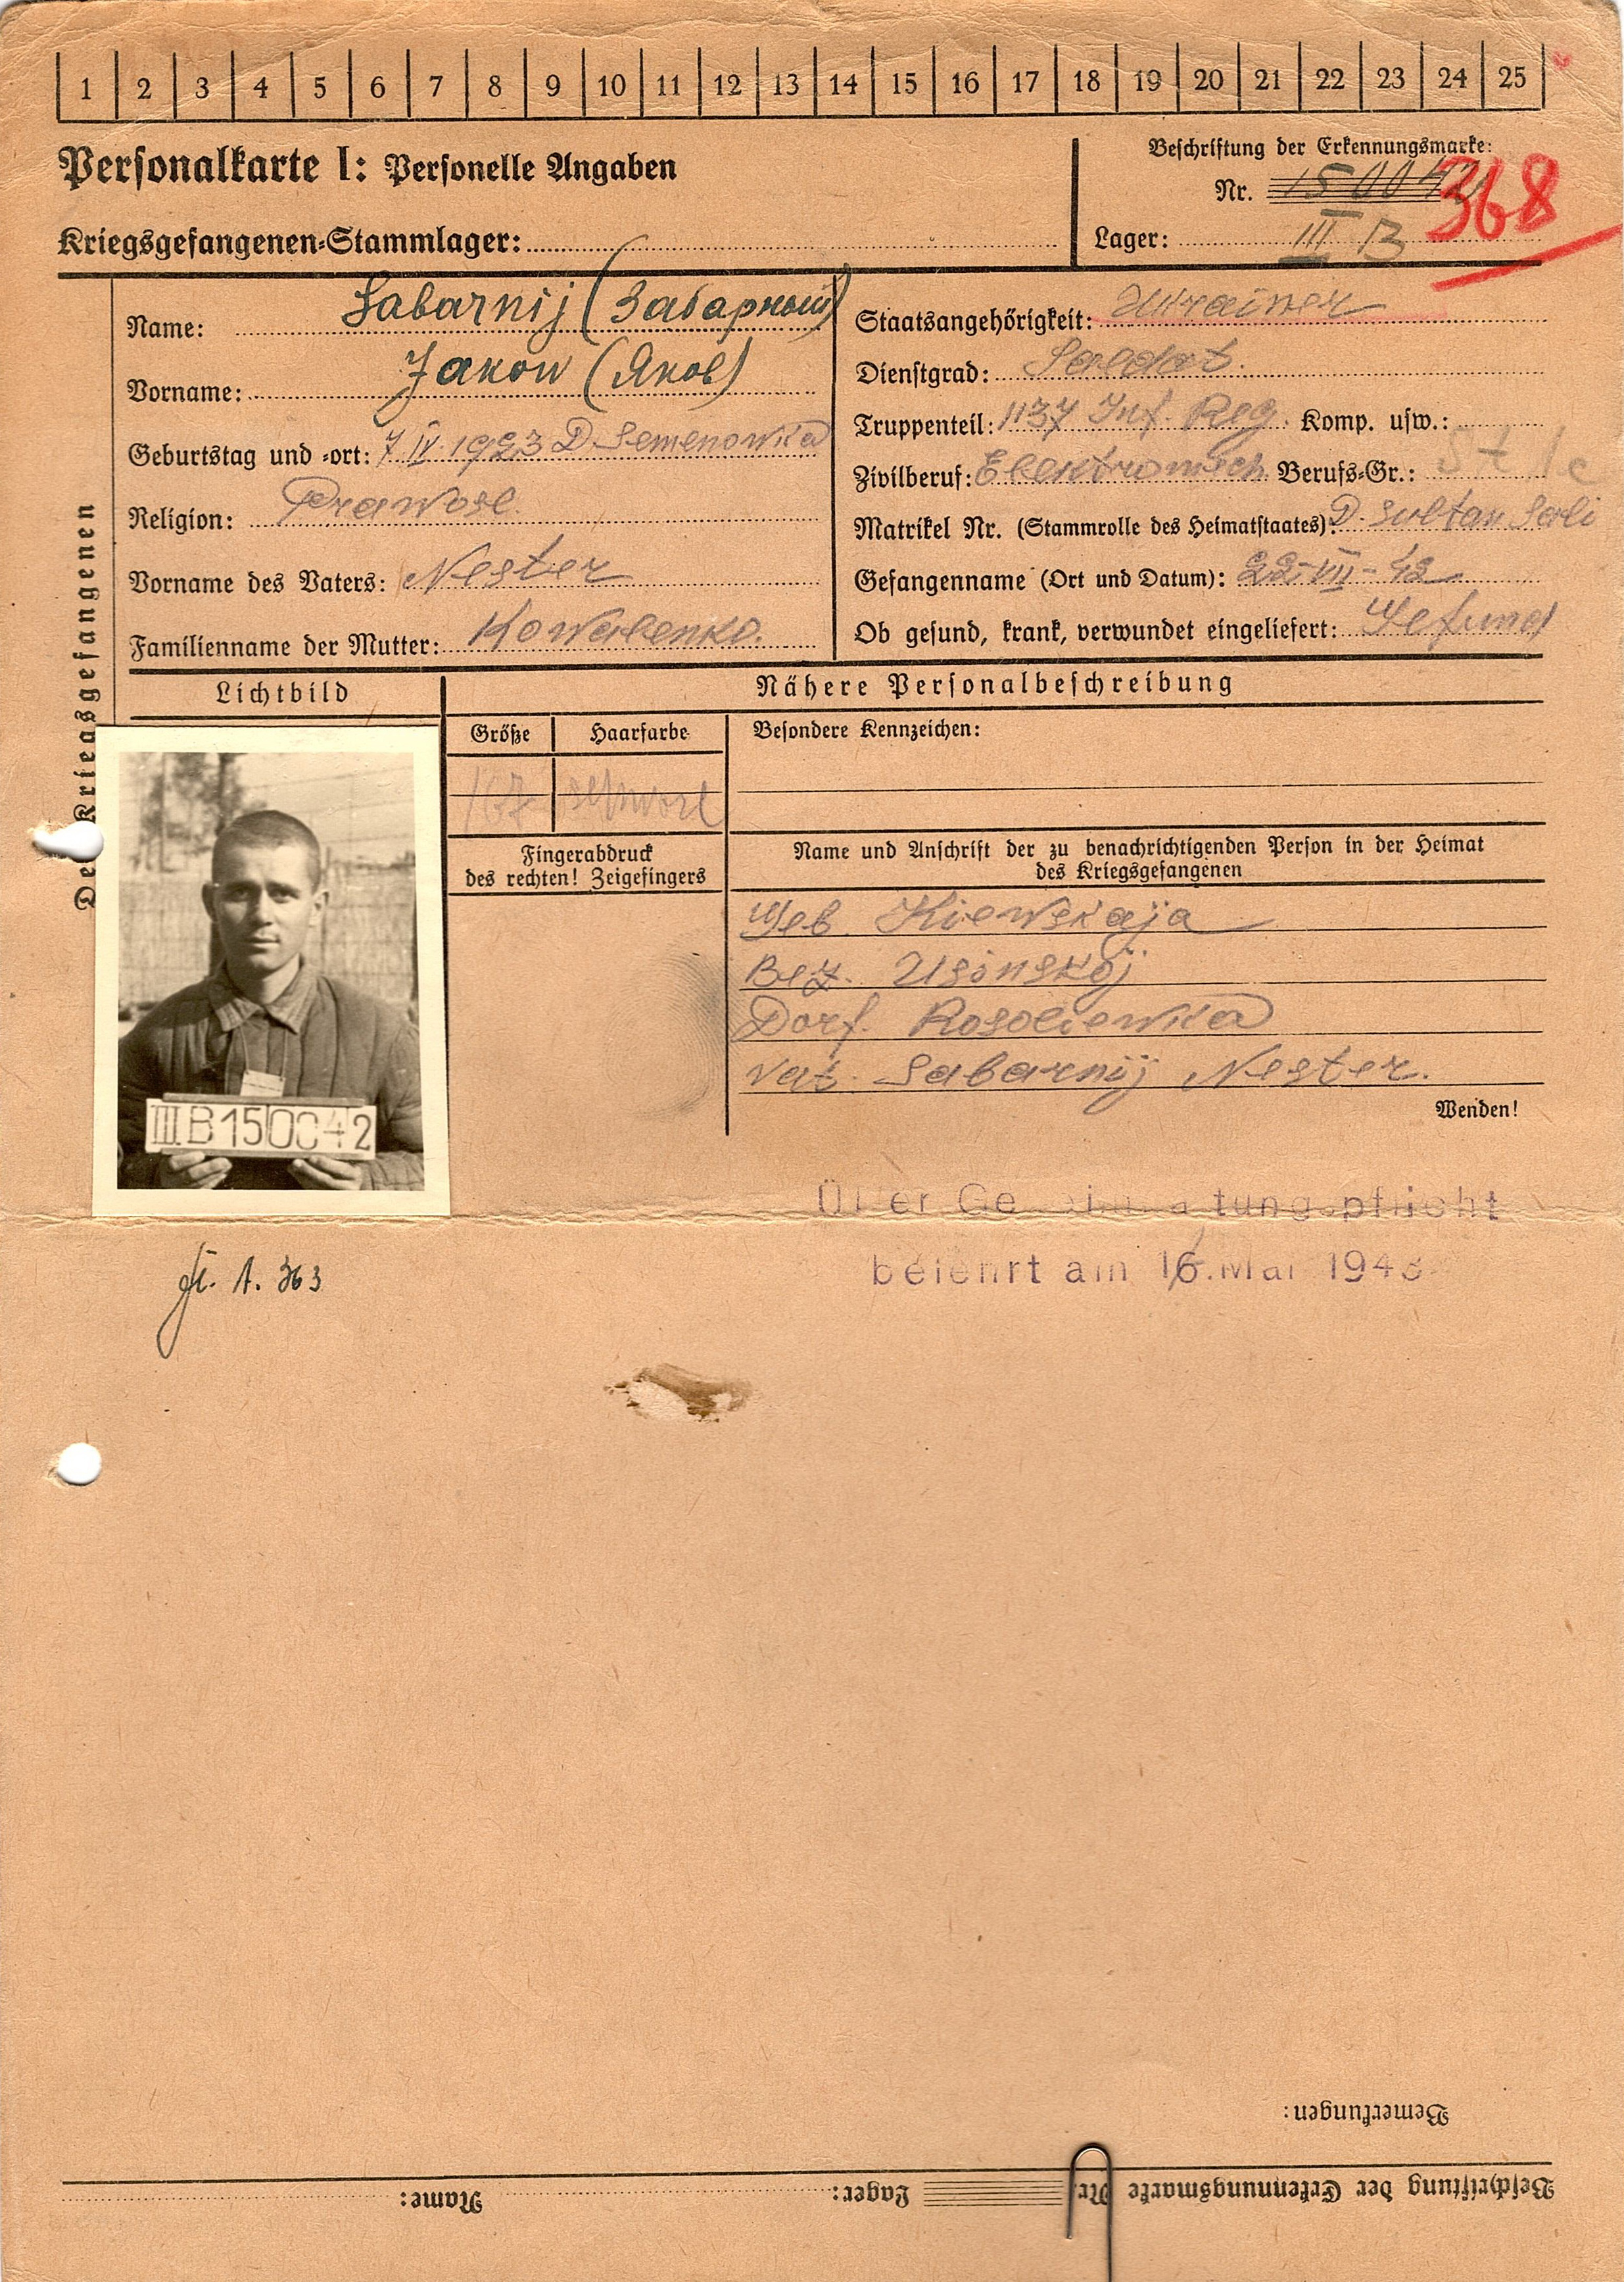 1 2 3 4 5 6 7 8 9 10 11 12 13 14 15 16 17 18 19 20 21 22 23 24 25
Personalkarte I: Personelle Angaben
Kriegsgefangenen-Stammlager:
Beschriftung der Erkennungsmarke:
Nr. 150042
368
Lager: III B
Des Kriegsgefangenen
Name: Sabarnij (Забарный)
Vorname: Jakow (Яков)
Geburtstag und -ort: 7 IV. 1923 D Semenowka
Religion: Prawosl.
Vorname des Vaters: Nester
Familienname der Mutter: Kowalenko.
Staatsangehörigkeit: Ukrainer
Dienstgrad: Soldat.
Truppenteil: 1137 Inf. Reg. Komp. usw.:
Zivilberuf: Elektromech. Berufs-Gr.:
Matrikel Nr. (Stammrolle des Heimatstaates): D. Sultan
Gefangenname (Ort und Datum): 22-VII-42
Ob gesund, krank, verwundet eingeliefert: Gesund
Lichtbild
Nähere Personalbeschreibung
Größe Haarfarbe Besondere Kennzeichen:
167
Fingerabdruck
des rechten! Zeigefingers
Name und Anschrift der zu benachrichtigenden Person in der Heimat
des Kriegsgefangenen
Geb. Kiewskaja
Bez. Usinskoj
Dorf. Rosoliewka
Vat. Sabarnij Nester.
Wenden!
III B 150042
belehrt am 16. Mai 1943
A. 363
Bemerkungen:
Beschriftung der Erkennungsmarke Nr. Lager: Name: